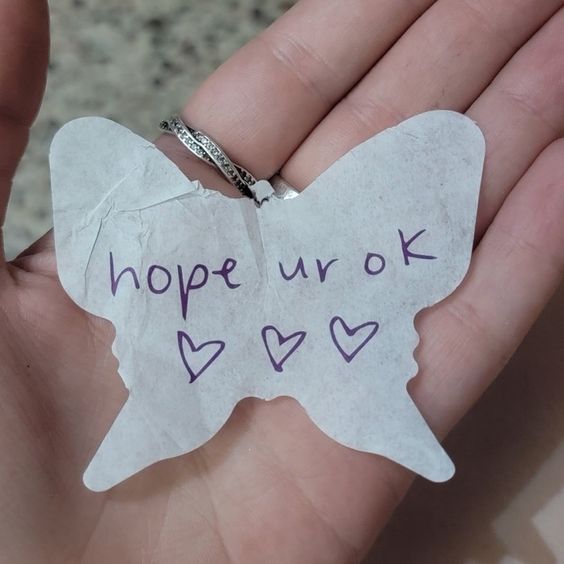 hope ur ok
♡ ♡ ♡